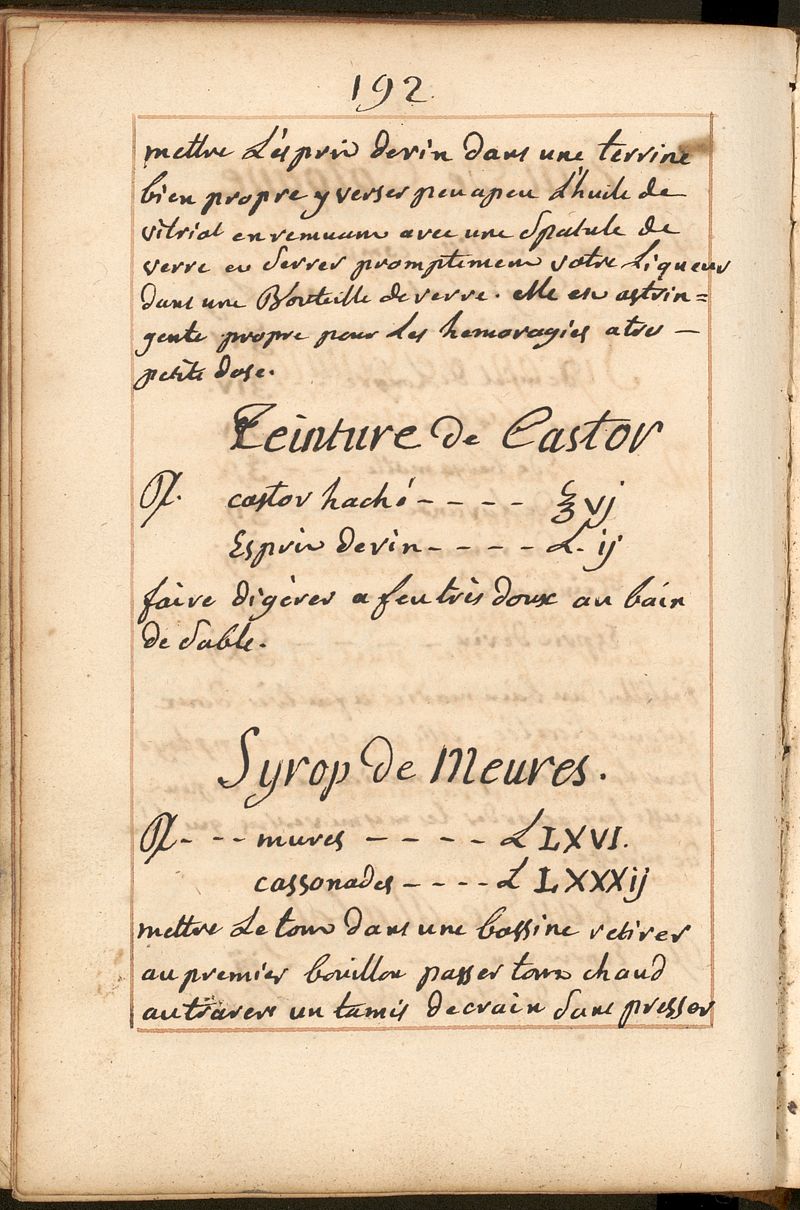 192
mettre L'ésprit devin dans une terrine
bien propre y verser peu apeu L'huile de
vitriol enremuant avec une Spatule de
verre et Serrer promptement votre Liqueur
dans une Bouteille deverre. elle est astrin=
gente propre pour Les hemoragies atres —
petite dose.
Teinture de Castor
℞. castor haché - - - - ℥ vj
Esprit devin - - - - L. ij
faire digérer a feu très doux au bain
de Sable.
Syrop de Meures.
℞ - - - mures - - - - L LXVI.
cassonades - - - - L LXXXij
mettre Le tout dans une bassine retirer
au premier bouillon passer tout chaud
autravers un tamis decrain Sans presser